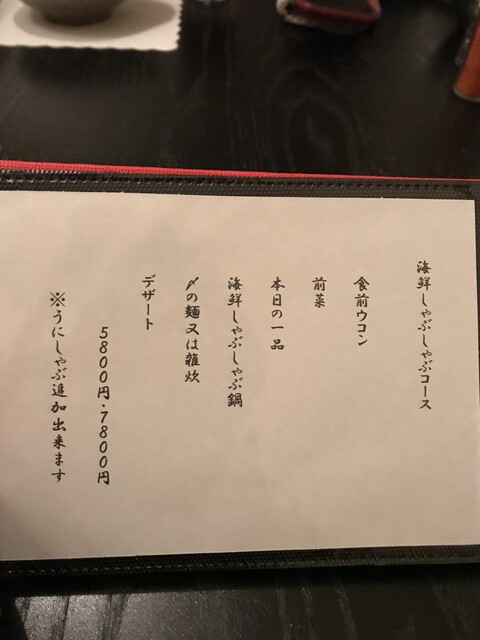 海鮮しゃぶしゃぶコース
食前ウコン
前菜
本日の一品
海鮮しゃぶしゃぶ鍋
〆の麺又は雑炊
デザート
5800円・7800円
※うにしゃぶ追加出来ます